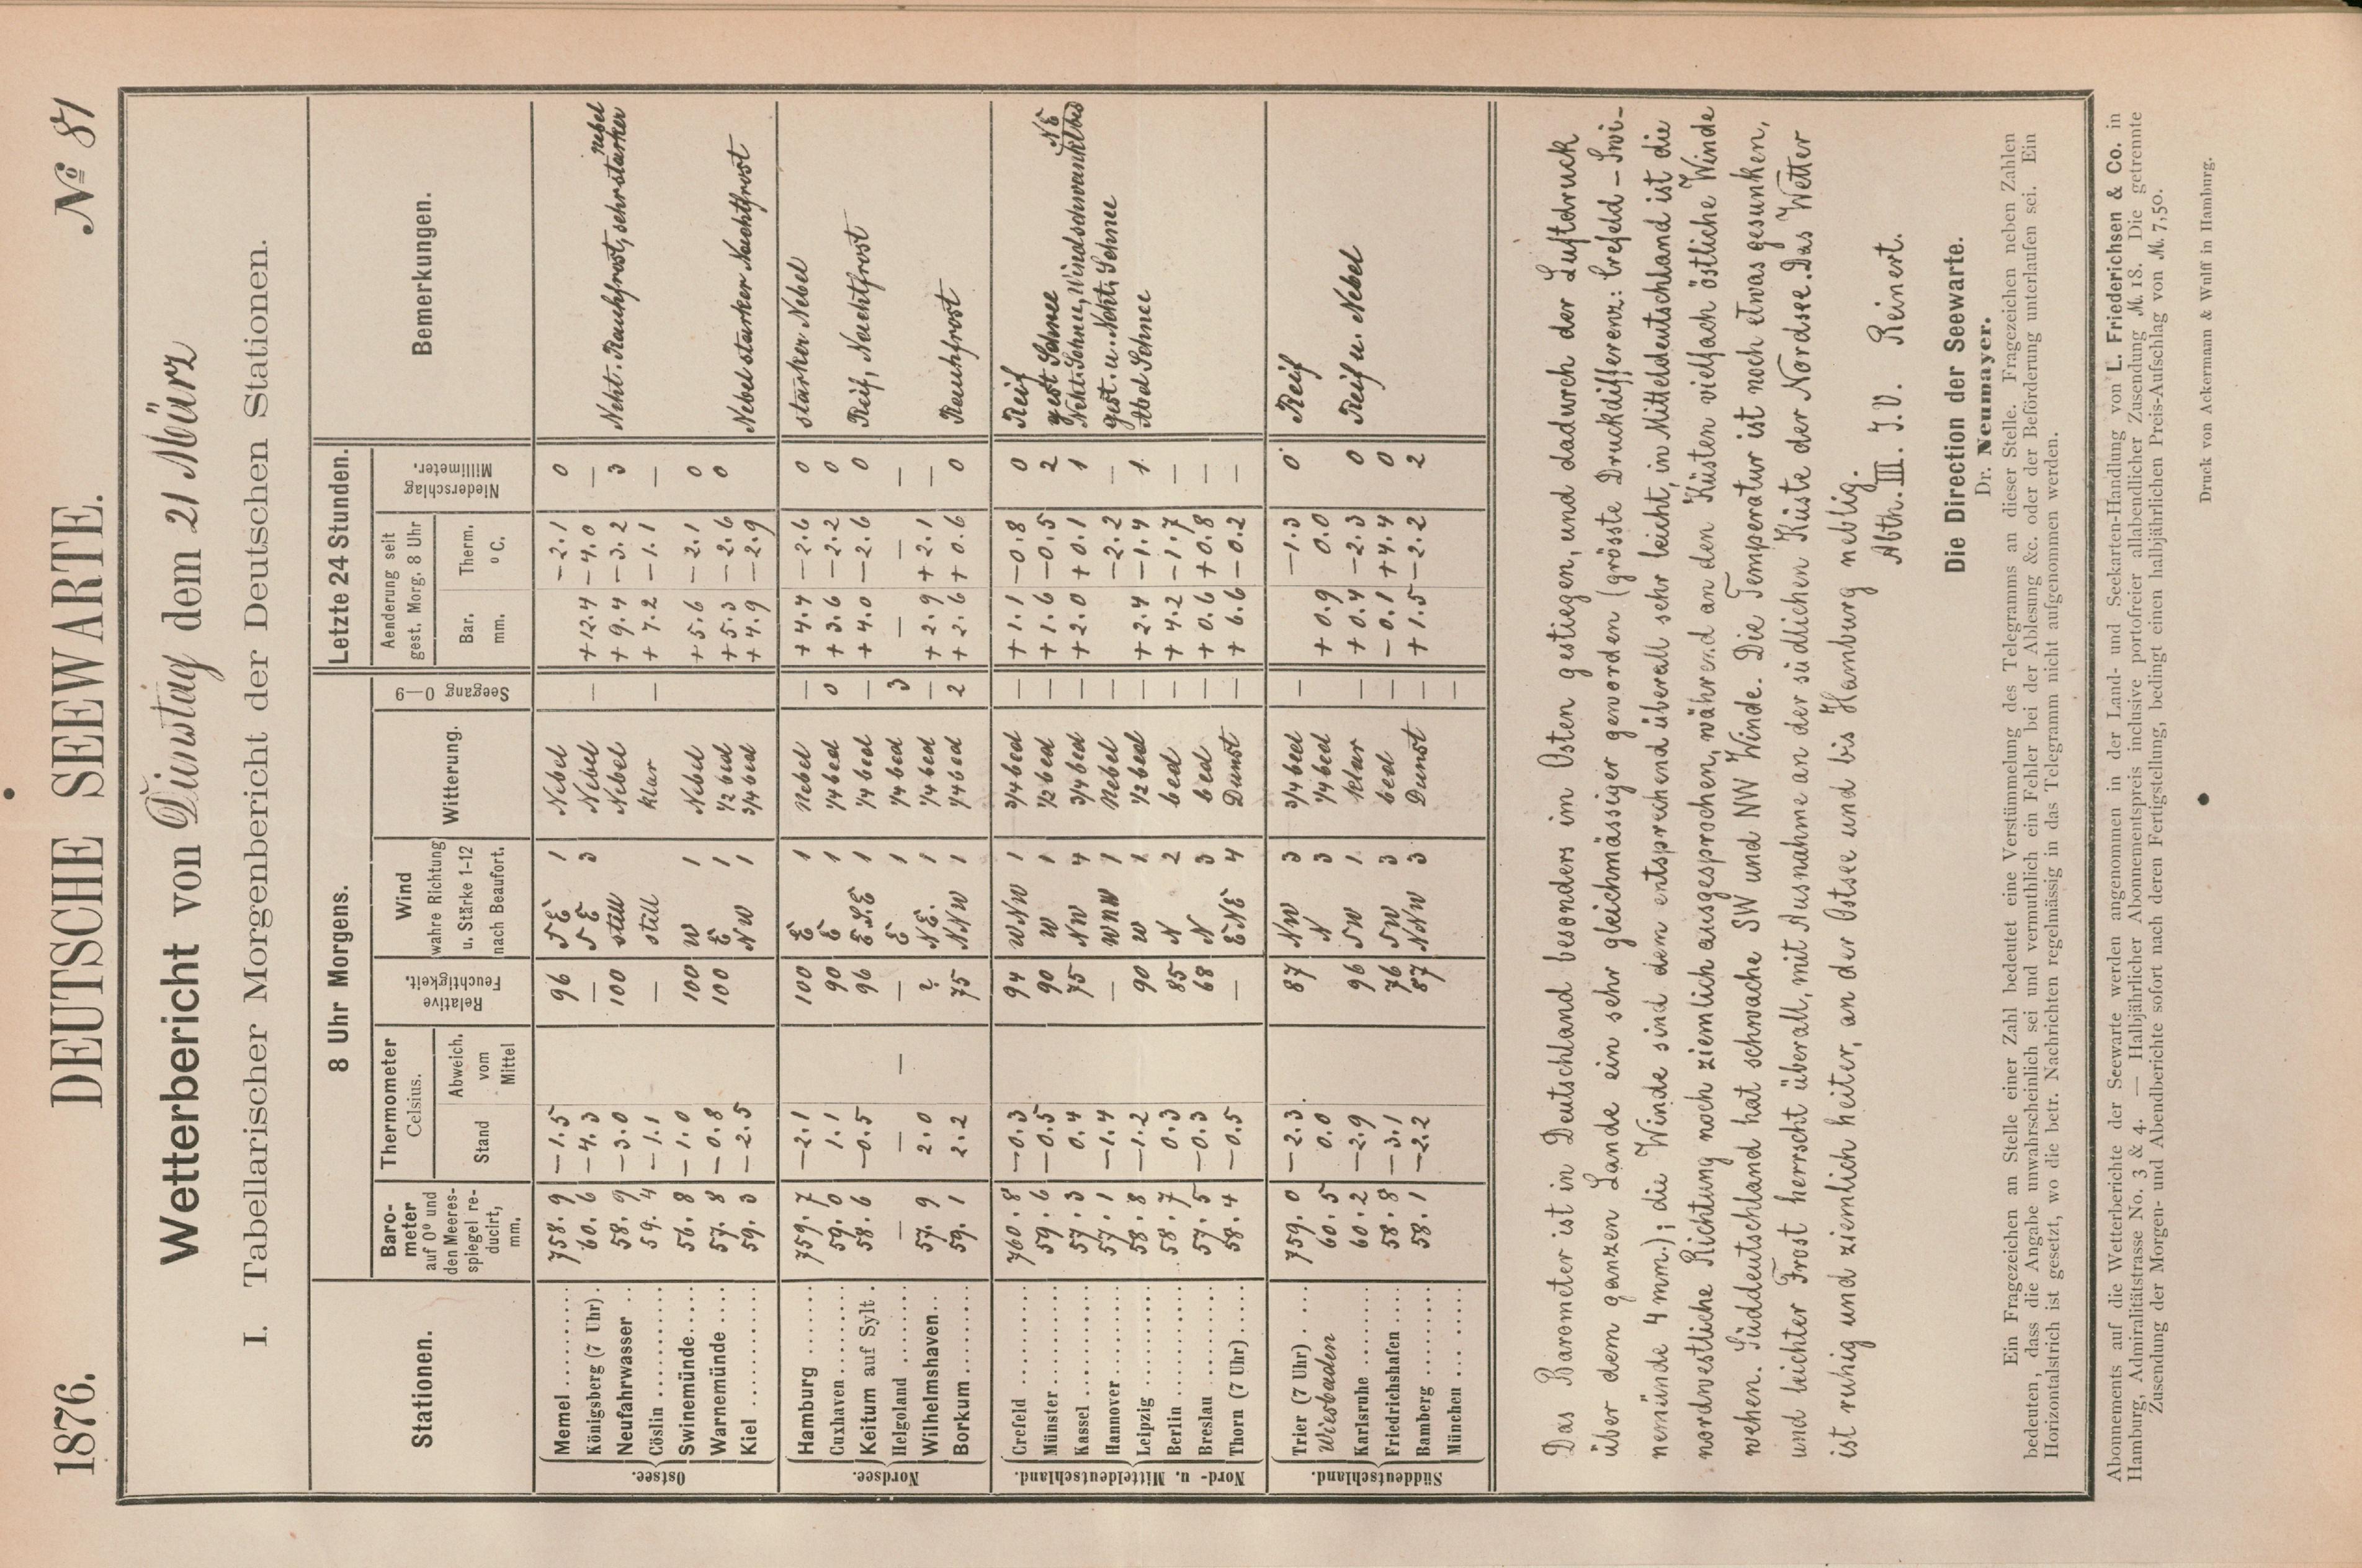 1876. DEUTSCHE SEEWARTE. No 81
Wetterbericht von Dienstag dem 21 März
I. Tabellarischer Morgenbericht der Deutschen Stationen.
Stationen. 8 Uhr Morgens. Letzte 24 Stunden. Bemerkungen.
Barometer auf 0° und den Meeresspiegel reducirt, mm. Thermometer Celsius. Stand Abweich. vom Mittel Relative Feuchtigkeit. Wind wahre Richtung u. Stärke 1-12 nach Beaufort. Witterung. Seegang 0—9 Aenderung seit gest. Morg. 8 Uhr Bar. mm. Therm. ° C. Niederschlag Millimeter.
Ostsee.
Memel 758.9 —1.5 96 SE 1 Nebel —2.1 0
Königsberg (7 Uhr) 60.6 —4.3 — SE 3 Nebel — +12.4 —4.0 —
Neufahrwasser 58.9 —3.0 100 still Nebel +9.4 —3.2 3 Ncht. Rauhfrost, sehr starker nebel
Cöslin 59.4 —1.1 — still klar — +7.2 —1.1 —
Swinemünde 56.8 —1.0 100 W 1 Nebel +5.6 —2.1 0
Warnemünde 57.8 —0.8 100 E 1 1/2 bed +5.3 —2.6 0
Kiel 59.3 —2.5 NW 1 3/4 bed +4.9 —2.9 Nebel starker Nachtfrost
Nordsee.
Hamburg 759.7 —2.1 100 E 1 Nebel — +4.4 —2.6 0 starker Nebel
Cuxhaven 59.0 1.1 90 E 1 1/4 bed 0 +3.6 —2.2 0
Keitum auf Sylt 58.6 —0.5 96 ESE 1 1/4 bed — +4.0 —2.6 0 Reif, Nachtfrost
Helgoland — — — — E 1 1/4 bed 3 — — —
Wilhelmshaven 57.9 2.0 ? NE. 1 1/4 bed — +2.9 +2.1 —
Borkum 59.1 2.2 75 NNW 1 1/4 bed 2 +2.6 +0.6 0 Rauhfrost
Nord- u. Mitteldeutschland.
Crefeld 760.8 —0.3 94 WNW 1 3/4 bed — +1.1 —0.8 0 Reif
Münster 59.6 —0.5 90 W 1 1/2 bed — +1.6 —0.5 2 gest Schnee
Kassel 57.3 0.4 75 NW 4 3/4 bed — +2.0 +0.1 1 Ncht. Schnee, Windschwankt bis NE
Hannover 57.1 —1.4 — WNW 1 Nebel — —2.2 — gest. u. Ncht. Schnee
Leipzig 58.8 —1.2 90 W 1 1/2 bed — +2.4 —1.4 1 Abd Schnee
Berlin 58.7 0.3 85 N 2 bed — +4.2 —1.7 —
Breslau 57.5 —0.3 68 N 3 bed — +0.6 +0.8 —
Thorn (7 Uhr) 58.4 —0.5 — ENE 4 Dunst — +6.6 —0.2 —
Süddeutschland.
Trier (7 Uhr) 759.0 —2.3 87 NW 3 3/4 bed — —1.3 0 Reif
Wiesbaden 60.5 0.0 N 3 1/4 bed +0.9 0.0
Karlsruhe 60.2 —2.9 96 SW 1 klar — +0.4 —2.3 0 Reif u. Nebel
Friedrichshafen 58.8 —3.1 76 SW 3 bed — —0.1 +4.4 0
Bamberg 58.1 —2.2 87 NNW 3 Dunst — +1.5 —2.2 2
München —
Das Barometer ist in Deutschland besonders im Osten gestiegen, und dadurch der Luftdruck
über dem ganzen Lande ein sehr gleichmässiger geworden (grösste Druckdifferenz: Crefeld – Swi-
nemünde 4 mm.); die Winde sind dem entsprechend überall sehr leicht, in Mitteldeutschland ist die
nordwestliche Richtung noch ziemlich ausgesprochen, während an den Küsten vielfach östliche Winde
wehen. Süddeutschland hat schwache SW und NW Winde. Die Temperatur ist noch etwas gesunken,
und leichter Frost herrscht überall, mit Ausnahme an der südlichen Küste der Nordsee. Das Wetter
ist ruhig und ziemlich heiter, an der Ostsee und bis Hamburg neblig.
Abth. III. I.V. Reinert.
Die Direction der Seewarte.
Dr. Neumayer.
Ein Fragezeichen an Stelle einer Zahl bedeutet eine Verstümmelung des Telegramms an dieser Stelle. Fragezeichen neben Zahlen
bedeuten, dass die Angabe unwahrscheinlich sei und vermuthlich ein Fehler bei der Ablesung &c. oder der Beförderung unterlaufen sei. Ein
Horizontalstrich ist gesetzt, wo die betr. Nachrichten regelmässig in das Telegramm nicht aufgenommen werden.
Abonnements auf die Wetterberichte der Seewarte werden angenommen in der Land- und Seekarten-Handlung von L. Friederichsen & Co. in
Hamburg, Admiralitätstrasse No. 3 & 4. — Halbjährlicher Abonnementspreis inclusive portofreier allabendlicher Zusendung M. 18. Die getrennte
Zusendung der Morgen- und Abendberichte sofort nach deren Fertigstellung, bedingt einen halbjährlichen Preis-Aufschlag von M. 7,50.
Druck von Ackermann & Wulff in Hamburg.